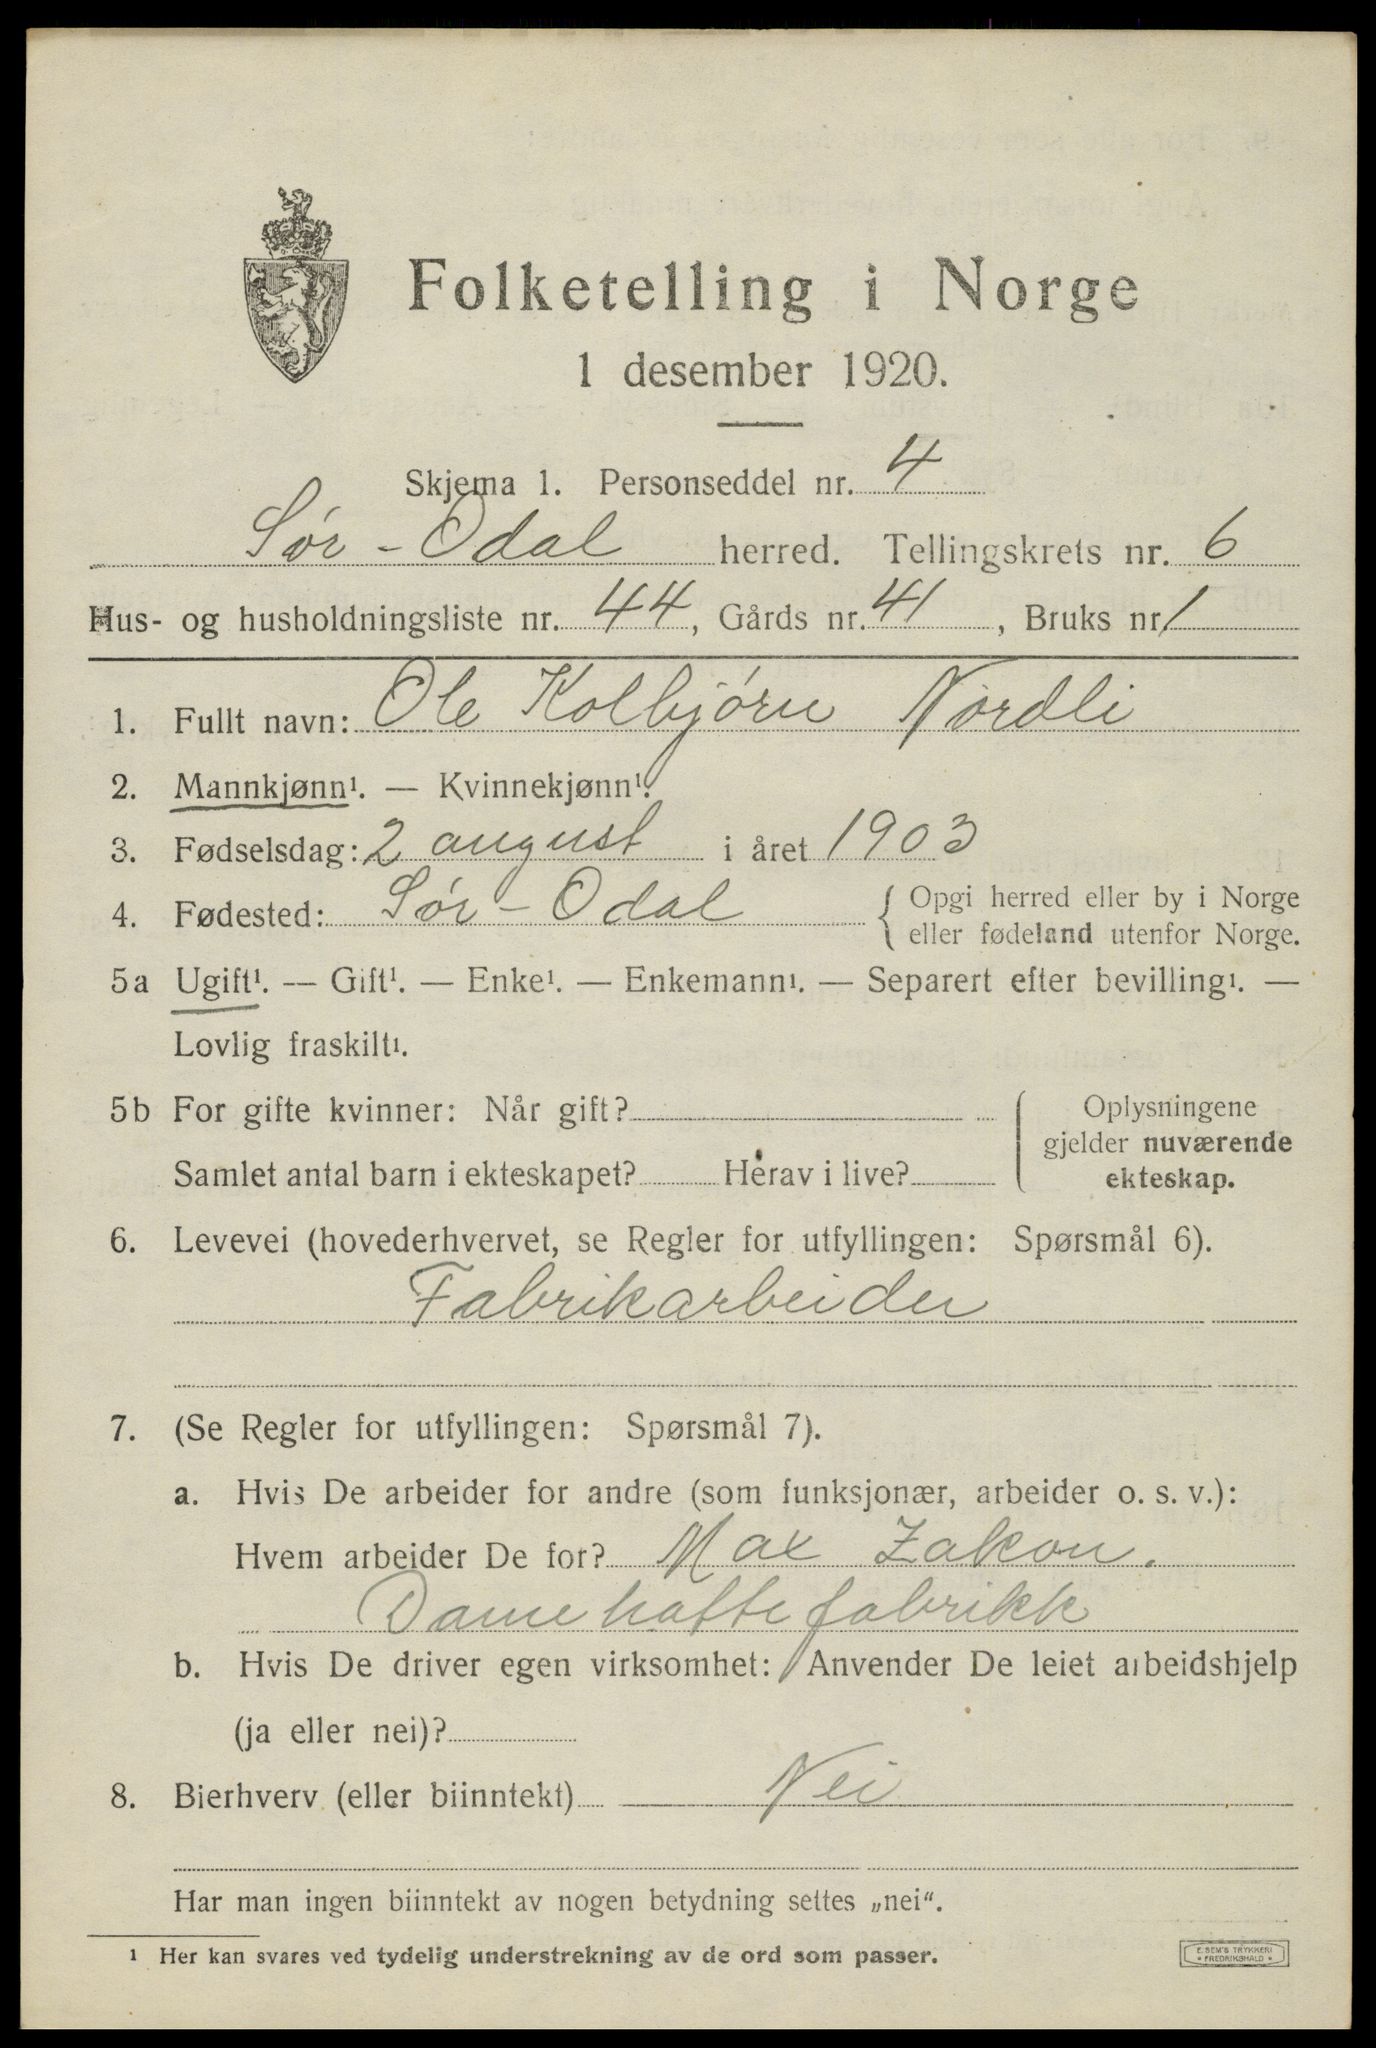 Folketelling i Norge
1 desember 1920.
Skjema 1. Personseddel nr. 4
Sør-Odal herred. Tellingskrets nr. 6
Hus- og husholdningsliste nr. 44, Gårds nr. 41, Bruks nr. 1
1. Fullt navn: Ole Kolbjørn Nordli
2. Mannkjønn¹. — Kvinnekjønn¹.
3. Fødselsdag: 2 august i året 1903
4. Fødested: Sør-Odal { Opgi herred eller by i Norge
eller fødeland utenfor Norge.
5a Ugift¹. — Gift¹. — Enke¹. — Enkemann¹. — Separert efter bevilling¹. —
Lovlig fraskilt¹.
5b For gifte kvinner: Når gift?
Samlet antal barn i ekteskapet? Herav i live?
Oplysningene
gjelder nuværende
ekteskap.
6. Levevei (hovederhvervet, se Regler for utfyllingen: Spørsmål 6).
Fabrikarbeider
7. (Se Regler for utfyllingen: Spørsmål 7).
a. Hvis De arbeider for andre (som funksjonær, arbeider o. s. v.):
Hvem arbeider De for? Max Zakon.
Damehattefabrikk
b. Hvis De driver egen virksomhet: Anvender De leiet arbeidshjelp
(ja eller nei)?
8. Bierhverv (eller biinntekt) Nei
Har man ingen biinntekt av nogen betydning settes „nei“.
¹ Her kan svares ved tydelig understrekning av de ord som passer.
E. SEM'S TRYKKERI
* FREDRIKSHALD *